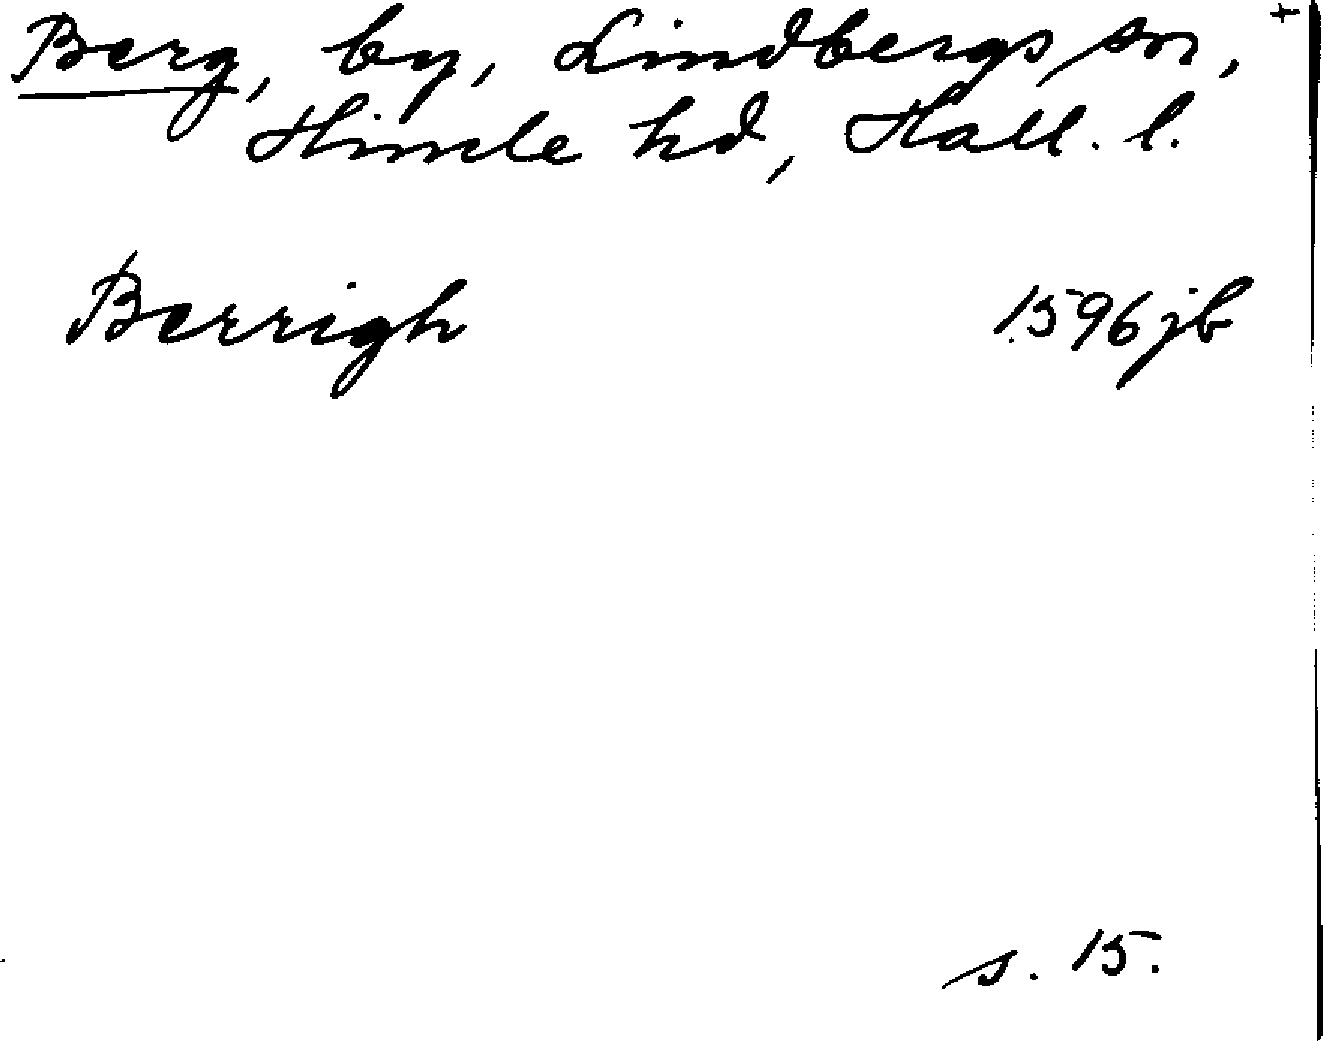 Berg, by, Lindbergs sn, +
Himle hd, Hall. l.
Berrigh 1596 jb
s. 15.